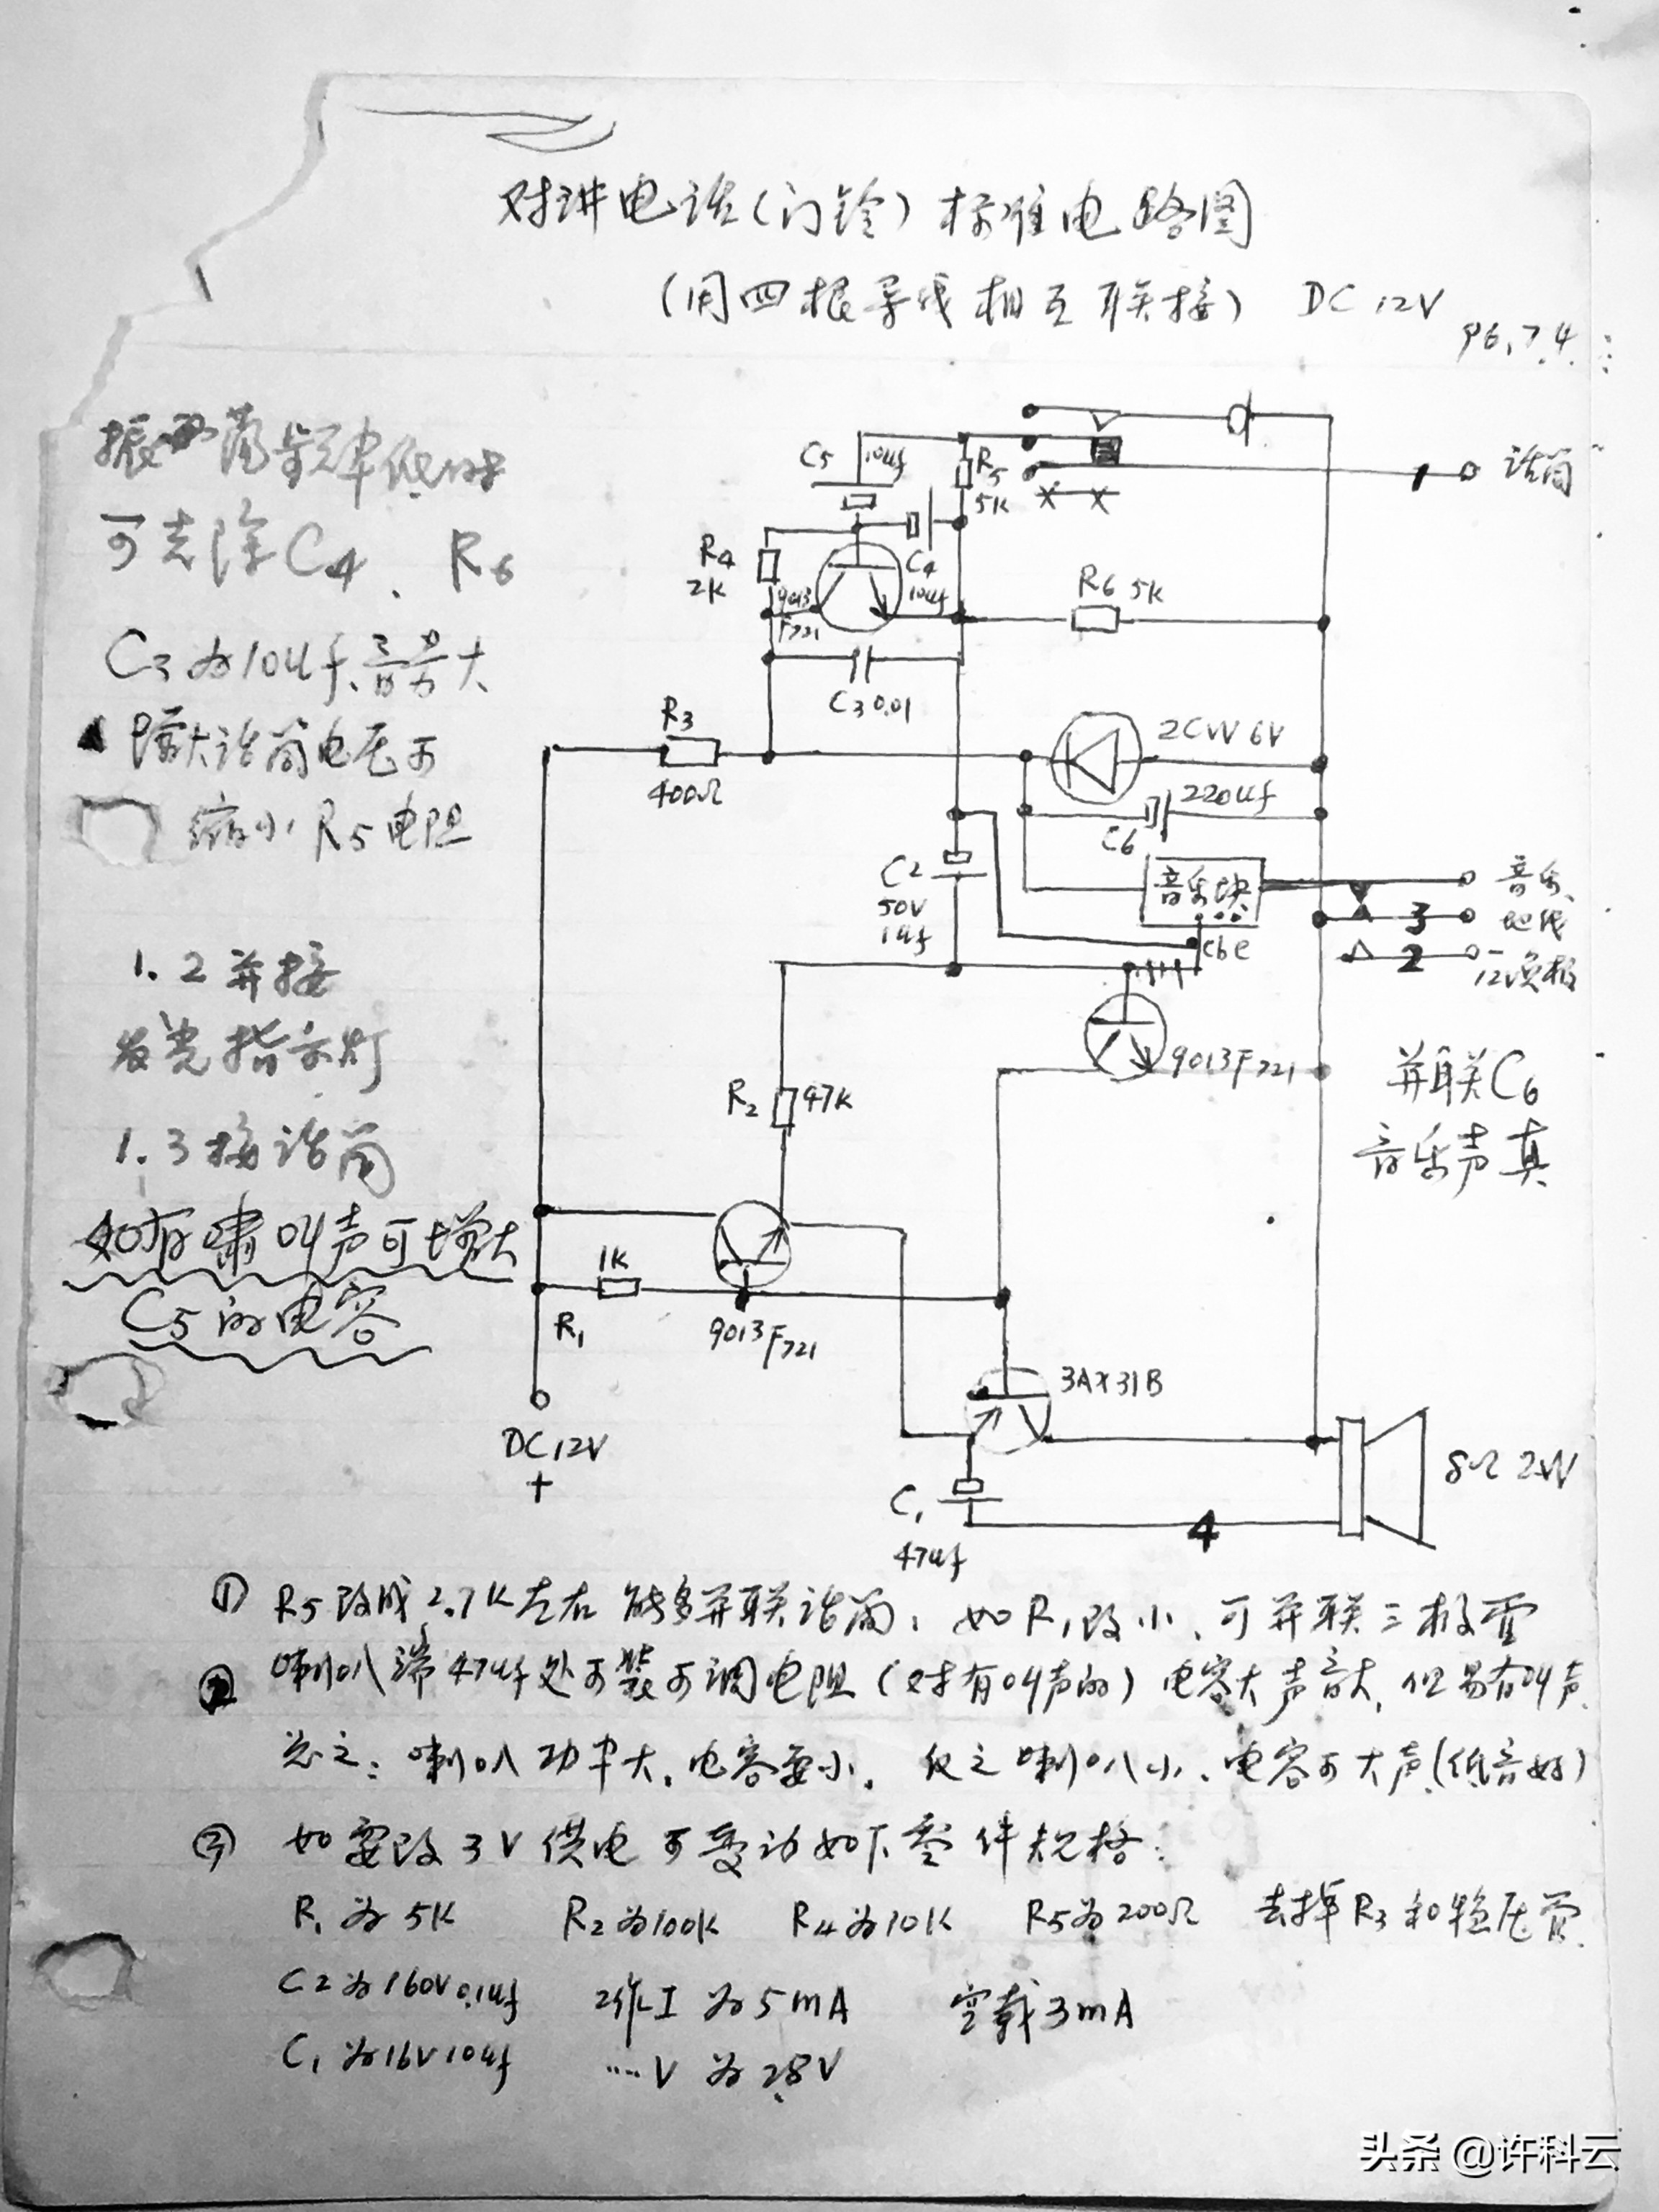 对讲电话(门铃)标准电路图
(用四根导线相互联接) DC 12V
96.7.4.
振荡频率低时
可去除C4、R6
C3为10uf、音量大
增大话筒电压可
缩小R5电阻
1.2并接
发光指示灯
1.3接话筒
如有啸叫声可增大
C5的电容
C5 10uf
R5
5K
话筒
R4
2K
9013
F721
C4
10uf
R6 5K
C3 0.01
R3
400Ω
2CW 6V
220uf
C6
音乐块
cbe
1
音乐
3
地线
2
12V负极
C2
50V
1uf
R2 47K
9013F721
并联C6
音乐声真
1K
R1
9013F721
3AX31B
DC12V
+
C1
47uf
4
8Ω 2W
① R5改成2.7K左右 能多并联话筒, 如R1改小、可并联三极管
② 喇叭端47uf处可装可调电阻(对有叫声的) 电容大声音大, 但易有叫声
总之: 喇叭功率大, 电容要小, 反之喇叭小, 电容可大声(低音好)
③ 如要改3V供电可变动如下零件规格:
R1为5K R2为100K R4为10K R5为200Ω 去掉R3和稳压管
C2为160V0.1uf 工作I为5mA 空载3mA
C1为16V10uf ····V为2.8V
头条@许科云